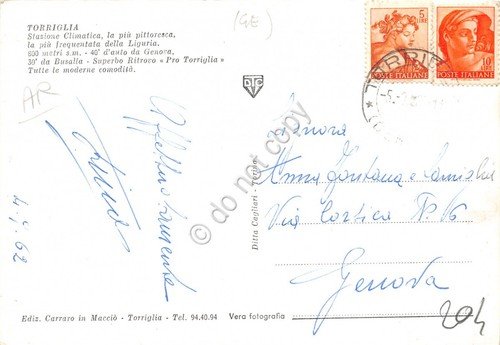 TORRIGLIA
Stazione Climatica, la più pittoresca,
la più frequentata della Liguria.
800 metri s.m. - 40' d'auto da Genova,
30' da Busalla - Superbo Ritrovo « Pro Torriglia »
Tutte le moderne comodità.
(GE)
AR
5
LIRE
POSTE ITALIANE
10
POSTE ITALIANE
Affettuosamente
4. 62
DTC
Ditta Cagliari - Torino
do not copy
Anna Fontana e famiglia
Via
Genova
204
Ediz. Carraro in Macciò - Torriglia - Tel. 94.40.94
Vera fotografia